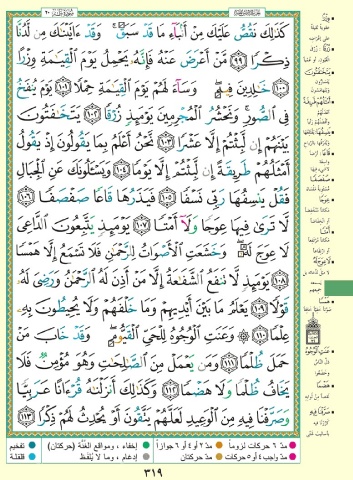 كَذَٰلِكَ نَقُصُّ عَلَيْكَ مِنْ أَنۢبَآءِ مَا قَدْ سَبَقَ ۚ وَقَدْ ءَاتَيْنَـٰكَ مِن لَّدُنَّا
ذِكْرًا ٩٩ مَّنْ أَعْرَضَ عَنْهُ فَإِنَّهُۥ يَحْمِلُ يَوْمَ ٱلْقِيَـٰمَةِ وِزْرًا
١٠٠ خَـٰلِدِينَ فِيهِ ۖ وَسَآءَ لَهُمْ يَوْمَ ٱلْقِيَـٰمَةِ حِمْلًا ١٠١ يَوْمَ يُنفَخُ
فِى ٱلصُّورِ ۚ وَنَحْشُرُ ٱلْمُجْرِمِينَ يَوْمَئِذٍ زُرْقًا ١٠٢ يَتَخَـٰفَتُونَ
بَيْنَهُمْ إِن لَّبِثْتُمْ إِلَّا عَشْرًا ١٠٣ نَّحْنُ أَعْلَمُ بِمَا يَقُولُونَ إِذْ يَقُولُ
أَمْثَلُهُمْ طَرِيقَةً إِن لَّبِثْتُمْ إِلَّا يَوْمًا ١٠٤ وَيَسْـَٔلُونَكَ عَنِ ٱلْجِبَالِ
فَقُلْ يَنسِفُهَا رَبِّى نَسْفًا ١٠٥ فَيَذَرُهَا قَاعًا صَفْصَفًا ١٠٦
لَّا تَرَىٰ فِيهَا عِوَجًا وَلَآ أَمْتًا ١٠٧ يَوْمَئِذٍ يَتَّبِعُونَ ٱلدَّاعِىَ
لَا عِوَجَ لَهُۥ ۖ وَخَشَعَتِ ٱلْأَصْوَاتُ لِلرَّحْمَـٰنِ فَلَا تَسْمَعُ إِلَّا هَمْسًا
١٠٨ يَوْمَئِذٍ لَّا تَنفَعُ ٱلشَّفَـٰعَةُ إِلَّا مَنْ أَذِنَ لَهُ ٱلرَّحْمَـٰنُ وَرَضِىَ لَهُۥ
قَوْلًا ١٠٩ يَعْلَمُ مَا بَيْنَ أَيْدِيهِمْ وَمَا خَلْفَهُمْ وَلَا يُحِيطُونَ بِهِۦ
عِلْمًا ١١٠ ۞ وَعَنَتِ ٱلْوُجُوهُ لِلْحَىِّ ٱلْقَيُّومِ ۖ وَقَدْ خَابَ مَنْ
حَمَلَ ظُلْمًا ١١١ وَمَن يَعْمَلْ مِنَ ٱلصَّـٰلِحَـٰتِ وَهُوَ مُؤْمِنٌ فَلَا
يَخَافُ ظُلْمًا وَلَا هَضْمًا ١١٢ وَكَذَٰلِكَ أَنزَلْنَـٰهُ قُرْءَانًا عَرَبِيًّا
وَصَرَّفْنَا فِيهِ مِنَ ٱلْوَعِيدِ لَعَلَّهُمْ يَتَّقُونَ أَوْ يُحْدِثُ لَهُمْ ذِكْرًا ١١٣
مدّ ٦ حركات لزوماً مدّ ٢ أو ٤ أو ٦ جوازاً إخفاء، ومواقع الغنّة (حركتان) تفخيم
مدّ واجب ٤ أو ٥ حركات مدّ حركتان إدغام، وما لا يُلفظ قلقلة
٣١٩